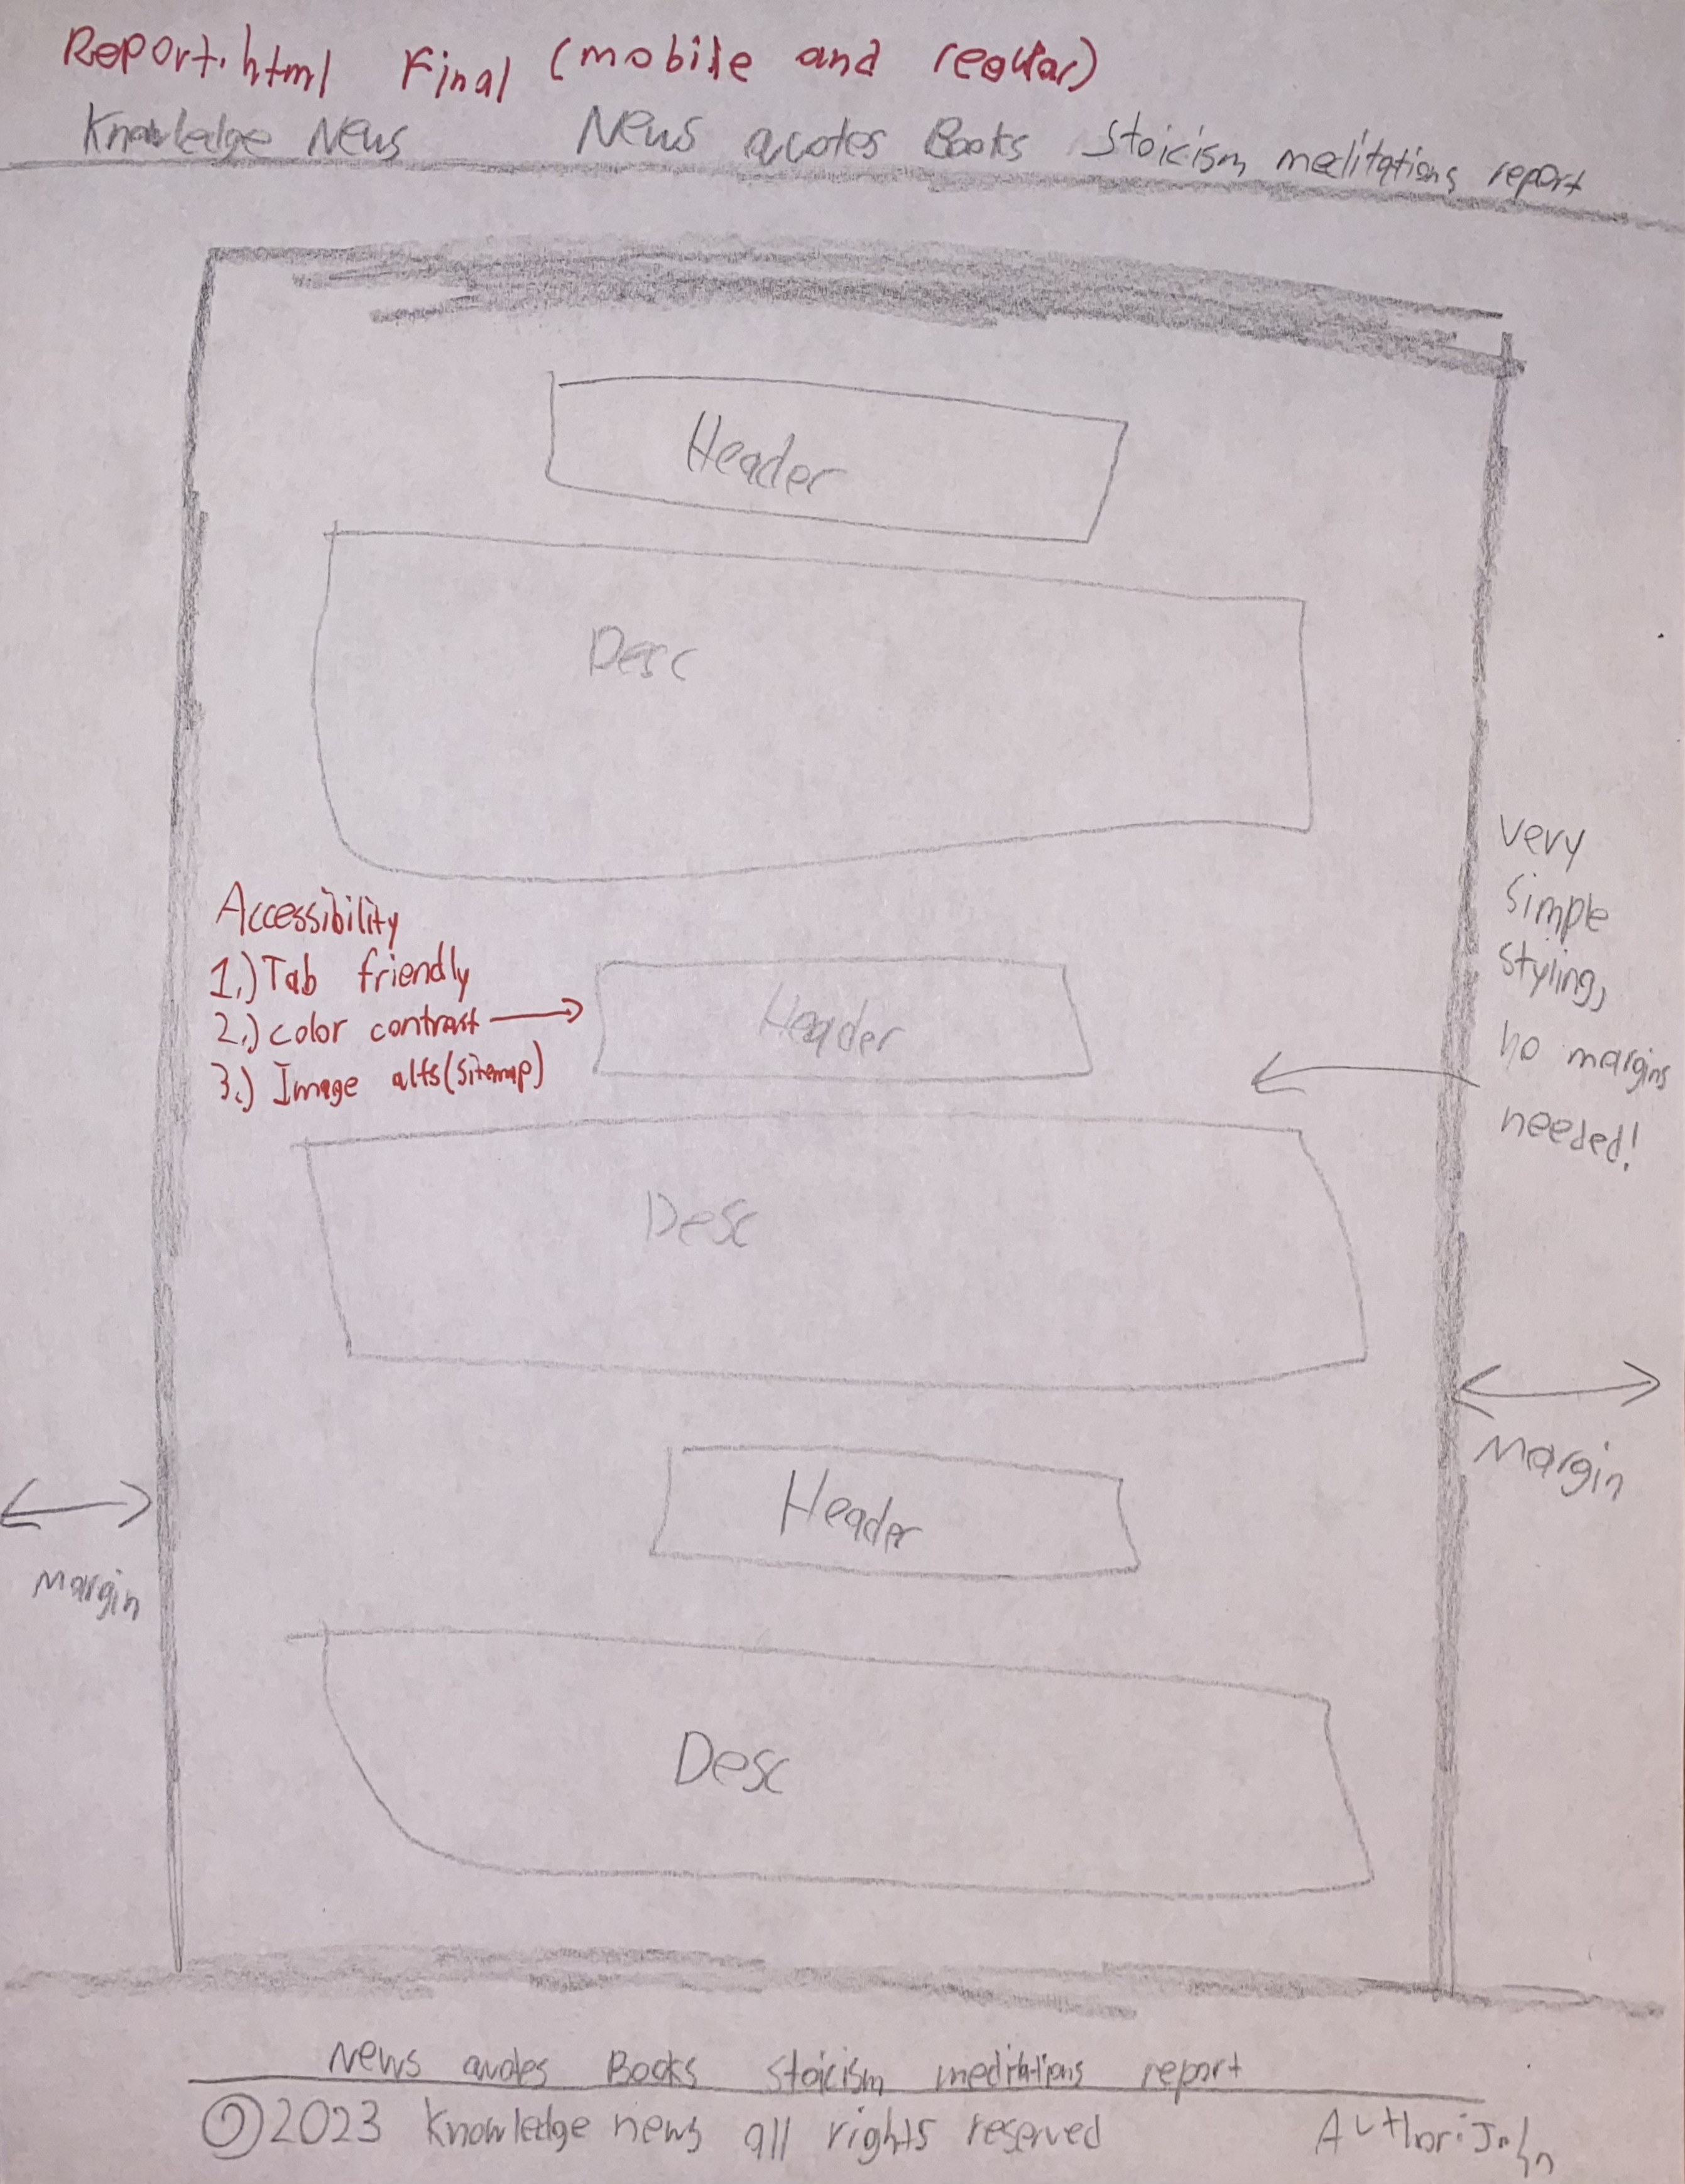 Report.html Final (mobile and regular)
Knowledge News News quotes Books Stoicism meditations report
Header
Desc
very
simple
styling,
no margins
needed!
Accessibility
1.) Tab friendly
2.) color contrast
3.) Image alts (sitemap)
Header
Desc
Margin
Header
margin
Desc
News quotes Books Stoicism meditations report
©2023 Knowledge news all rights reserved Author: John